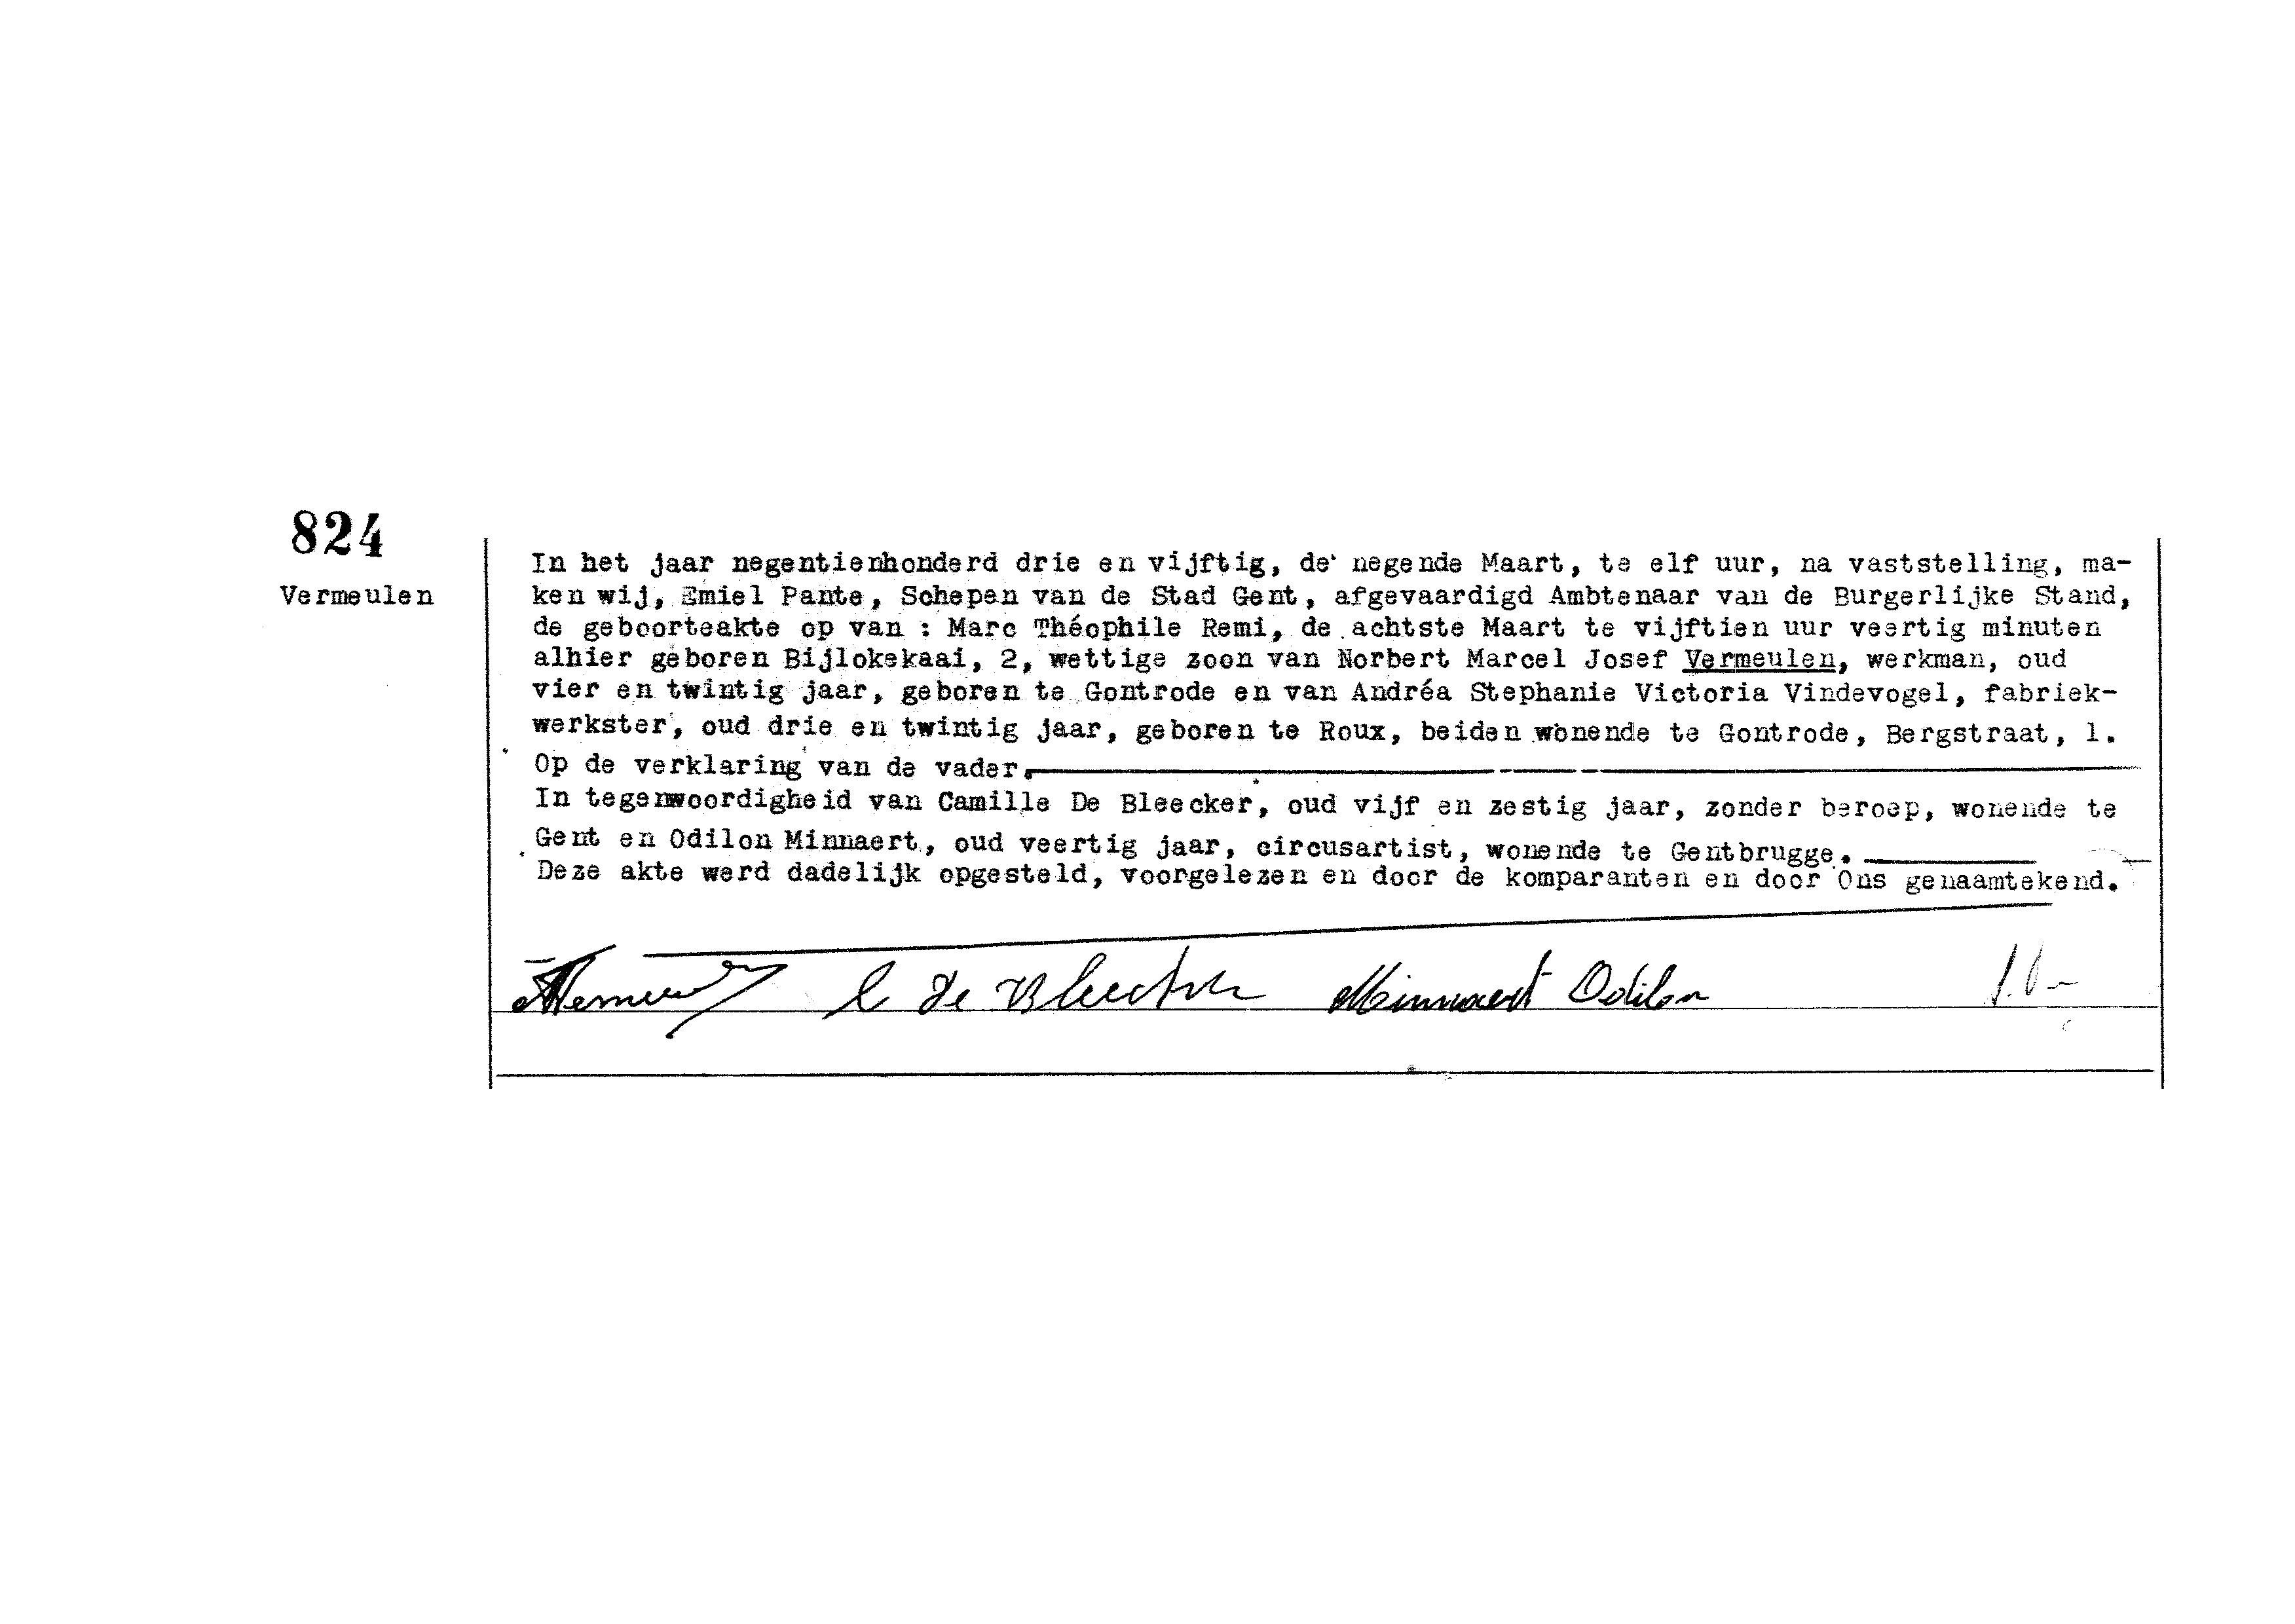 824
Vermeulen
In het jaar negentienhonderd drie en vijftig, de negende Maart, te elf uur, na vaststelling, ma-
ken wij, Emiel Pante, Schepen van de Stad Gent, afgevaardigd Ambtenaar van de Burgerlijke Stand,
de geboorteakte op van : Marc Théophile Remi, de achtste Maart te vijftien uur veertig minuten
alhier geboren Bijlokekaai, 2, wettige zoon van Norbert Marcel Josef Vermeulen, werkman, oud
vier en twintig jaar, geboren te Gontrode en van Andréa Stephanie Victoria Vindevogel, fabriek-
werkster, oud drie en twintig jaar, geboren te Roux, beiden wonende te Gontrode, Bergstraat, 1.
Op de verklaring van de vader.
In tegenwoordigheid van Camille De Bleecker, oud vijf en zestig jaar, zonder beroep, wonende te
Gent en Odilon Minnaert, oud veertig jaar, circusartist, wonende te Gentbrugge.
Deze akte werd dadelijk opgesteld, voorgelezen en door de komparanten en door Ons genaamtekend.
C De Bleecker Minnaert Odilon